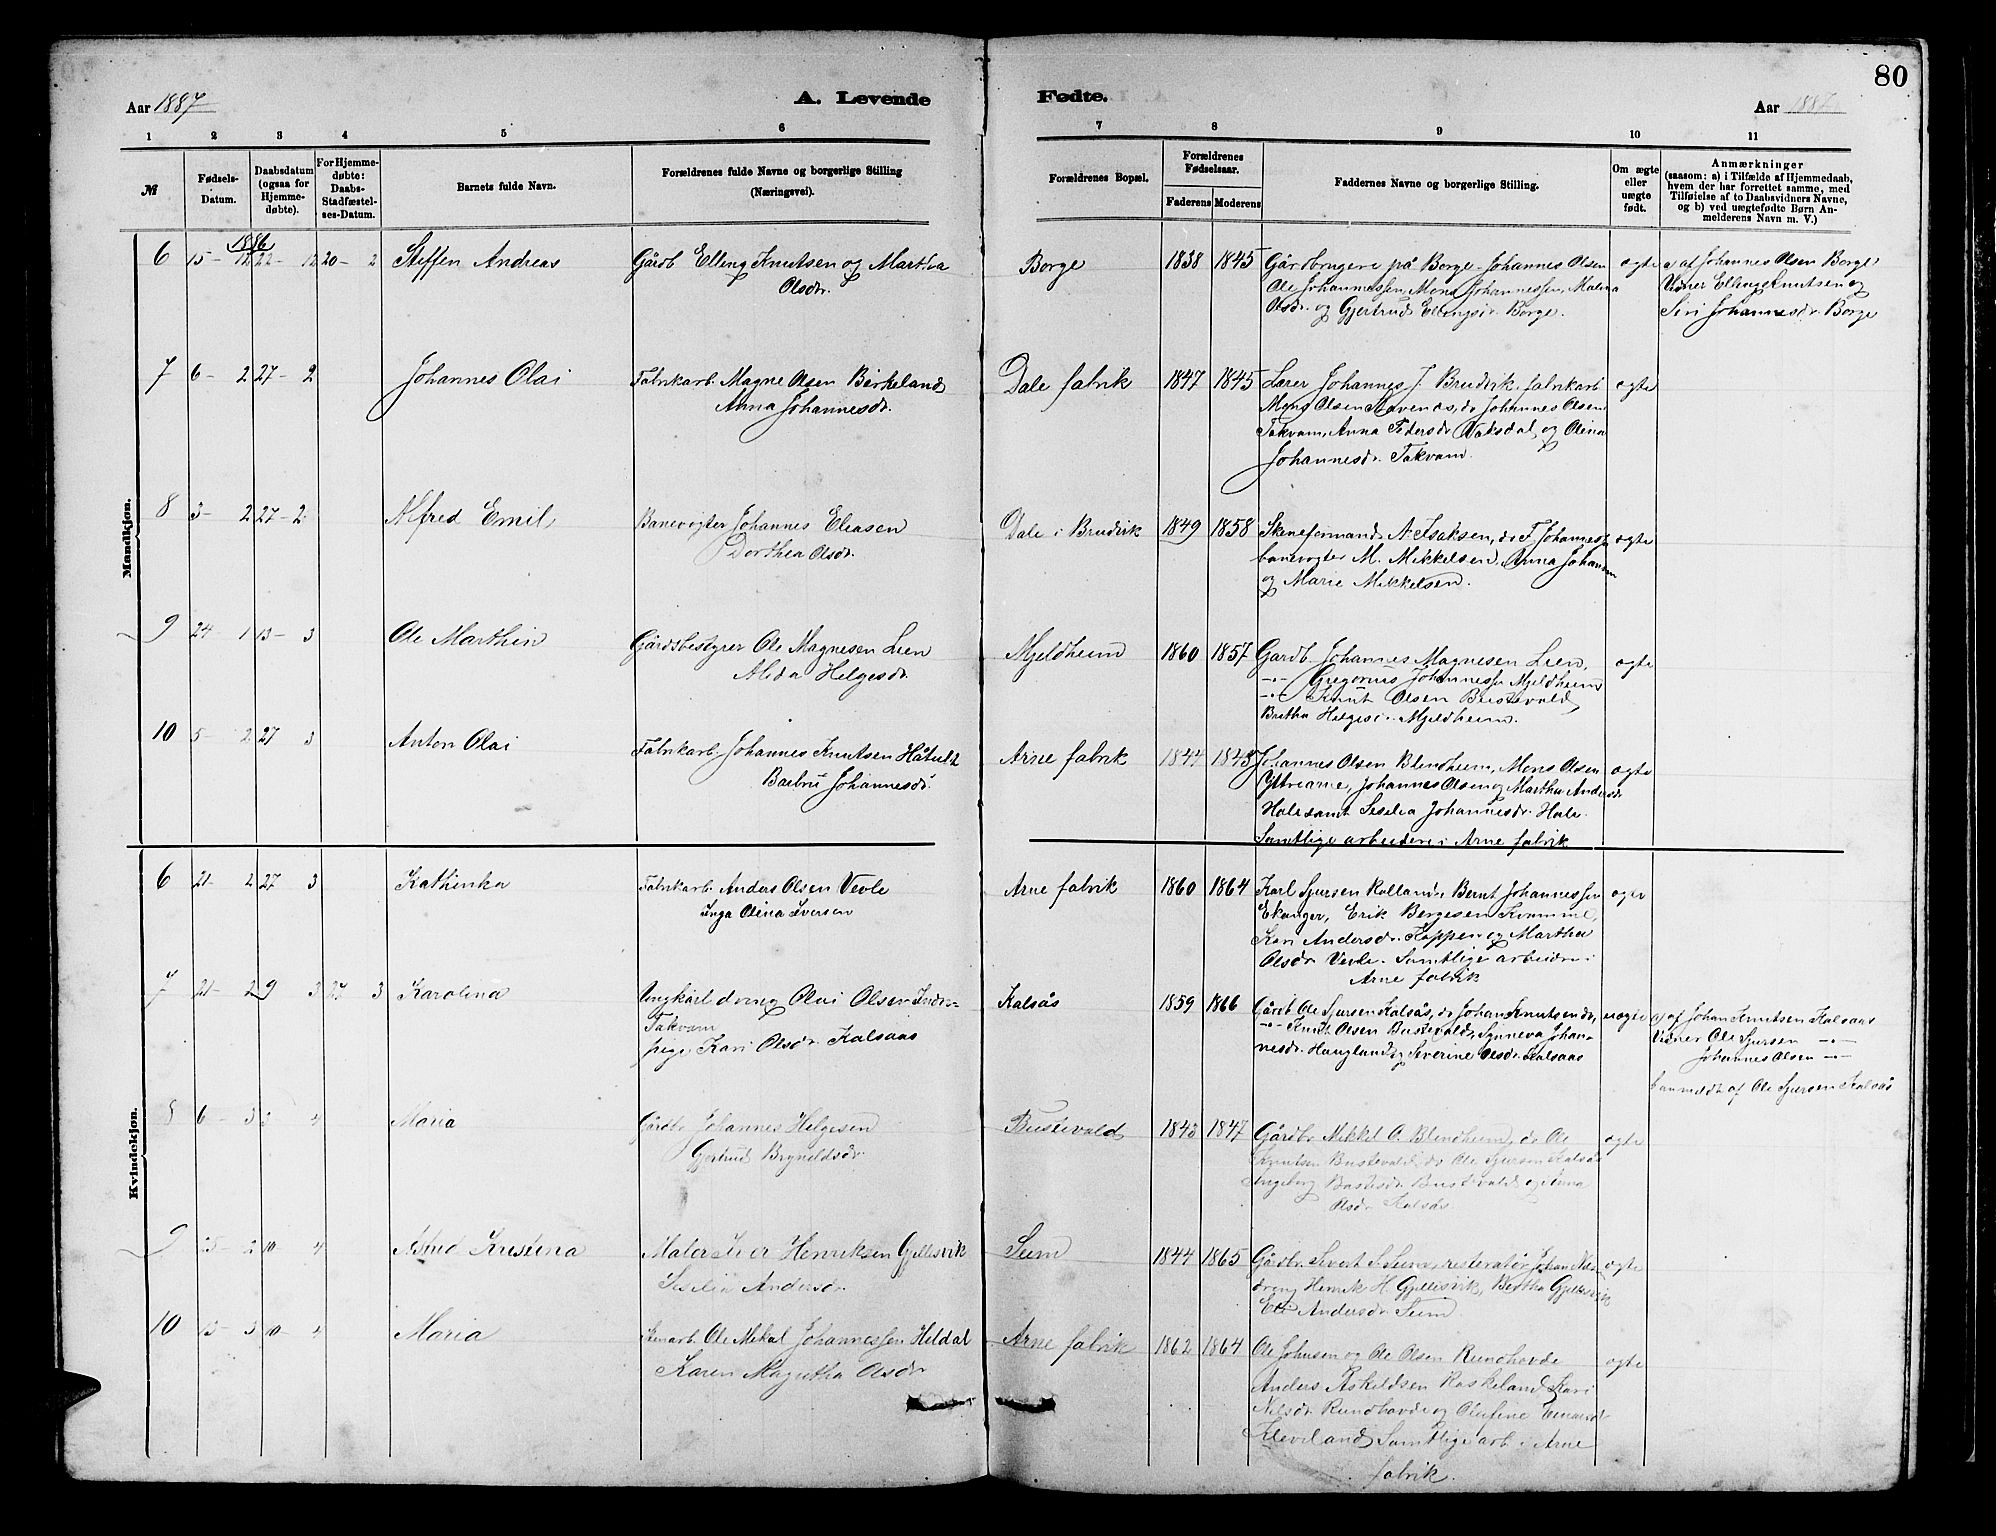 80
Aar 1887
A. Levende
Fødte.
Aar 1887
1 2 3 4 5 6 7 8 9 10 11
№
Fødsels-Datum.
Daabsdatum (ogsaa for Hjemmedøbte).
For Hjemmedøbte: Daabs-Stadfæstelses-Datum.
Barnets fulde Navn.
Forældrenes fulde Navne og borgerlige Stilling (Næringsvei).
Forældrenes Bopæl.
Forældrenes Fødselsaar.
Faderens Moderens
Faddernes Navne og borgerlige Stilling.
Om ægte eller uægte født.
Anmærkninger
(saasom: a) i Tilfælde af Hjemmedaab,
hvem der har forrettet samme, med
Tilføielse af to Daabsvidners Navne,
og b) ved uægtefødte Børn An-
melderens Navn m. V.)
Mandkjøn.
1886
6 15- 12 22- 12 20- 2 Steffen Andreas Gårdb Elling Knutsen og Martha Borge 1838 1845 Gårdbrugere på Borge Johannes Olsen ægte a) af Johannes Olsen Borge
Olsdr. Ole Johannessen, Mons Johannessen, Malena Vidner Elling Knutsen og
Olsdr. og Gjertrud Ellingsdr. Borge. Siri Johannesdr. Borge
7 6- 2 27- 2 Johannes Olai Fabrikarb. Magne Olsen Birkeland Dale fabrik 1847 1845 Lærer Johannes J. Brudvik, fabrikarb ægte
Anna Johannesdr. Mons Olsen do Johannes Olsen
Takvam, Anna Pedersdr Vaksdal, og Olina
Johannesdr. Takvam.
8 3- 2 27- 2 Alfred Emil Banevogter Johannes Eliasen Dale i Brudvik 1849 1858 A. Isaksen, do F. ægte
Dorthea Olsdr. banevogter M. Mikkelsen, Anna
og Marie Mikkelsen.
9 24 1 13- 3 Ole Marthin Gårdsbestyrer Ole Magnesen Lien Mjeldheim 1860 1857 Gardb. Johannes Magnesen Lien, ægte
Alida Helgesdr. -"- Gregorius Johannessen Mjeldheim
-"- Knut Olsen Bustevold,
Bertha Helgesd. Mjeldheim.
10 5- 2 27 3 Anton Olai Fabrikarb. Johannes Knutsen Arne fabrik 1844 1845 Johannes Olsen Blendheim, Mons Olsen ægte
Barbru Johannesdr. Ytrearne, Johannes Olsen og Martha Andersdr
Hole samt Seselia Johannesdr. Hole.
Samtlige arbeidere i Arne fabrik
Kvindekjøn.
6 21- 2 27 3 Kathinka Fabrikarb Anders Olsen Vevle Arne fabrik 1860 1864 Karl Sjursen Rolland, Bernt Johannessen ægte
Inga Olina Iversen Ekanger, Erik Bergesen
Kari Andersdr. Kappen og Martha
Olsdr Vevle. Samtlige arbeidere i
Arne fabrik
7 21- 2 9 3 27 3 Karolina Ungkarl dreng Olai Olsen Indre- Kalsås 1859 1866 Gårdb Ole Sjursen Kalsås, do Johan Knutsen do, uægte a) af Johan Knutsen Kalsaas
Takvam -"- Knut Olsen Bustevold, Synneva Johan- Vidner Ole Sjursen -"-
pige Kari Olsdr. Kalsaas nesdr. Haugland, Severine Olsdr. Kalsaas Johannes Olsen -"-
b anmeldt af Ole Sjursen Kalsås
8 6- 3 3 4 Maria Gårdbr Johannes Helgesen Bustevold 1843 1847 Gårdbr Mikkel O. Blendheim, do Ole ægte
Gjertrud Bryneldsdr. Knutsen Bustevold, do Ole Sjursen Kalsås
Ingeborg Bustevold og Anna
Olsdr Kalsås
9 25- 2 10- 4 Astrid Kristina Maler Iver Henriksen Gjellesvik Seim 1844 1865 Gårdbr. Sivert S. Seim, restoratør Johan ægte
Seselia Andersdr. Henrik H. Gjellesvik, Bertha Gjellesvik
Eli Andersdr Seim
10 13- 3 10- 4 Maria Ole Mikal Johannessen Heldal Arne fabrik 1862 1864 Ole Johnsen og Ole Olsen Rundhovde ægte
Karen Magretha Olsdr Anders Askeldsen Raskeland, Kari
Nilsdr Rundhovde og Olufine
Kleviland Samtlige arb. i Arne
fabrik.